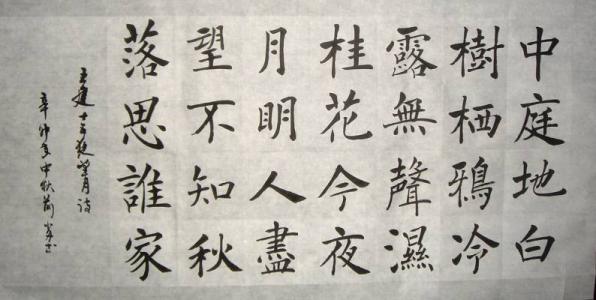 中庭地白
樹栖鴉冷
露無聲濕
桂花今夜
月明人盡
望不知秋
落思誰家
王建十五夜望月诗
辛卯年中秋前